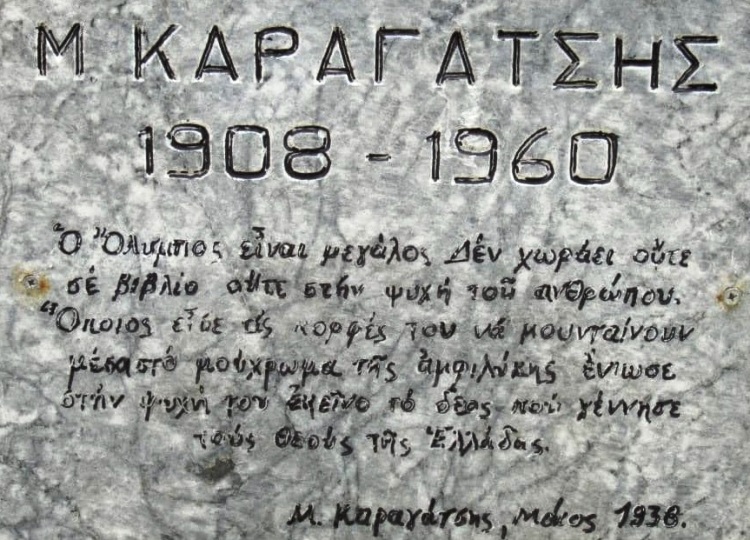 Μ ΚΑΡΑΓΑΤΣΗΣ
1908 - 1960
Ὁ Ὄλυμπος εἶναι μεγάλος Δέν χωράει οὔτε
σέ βιβλίο οὔτε στήν ψυχή τοῦ ἀνθρώπου.
Ὅποιος εἶδε τίς κορφές του νά μουνταίνουν
μέσα στό μούχρωμα τῆς ἀμφιλύκης ἔνιωσε
στήν ψυχή του ἐκεῖνο τό δέος πού γέννησε
τούς Θεούς τῆς Ἑλλάδας.
Μ. Καραγάτσης, Μάιος 1938.